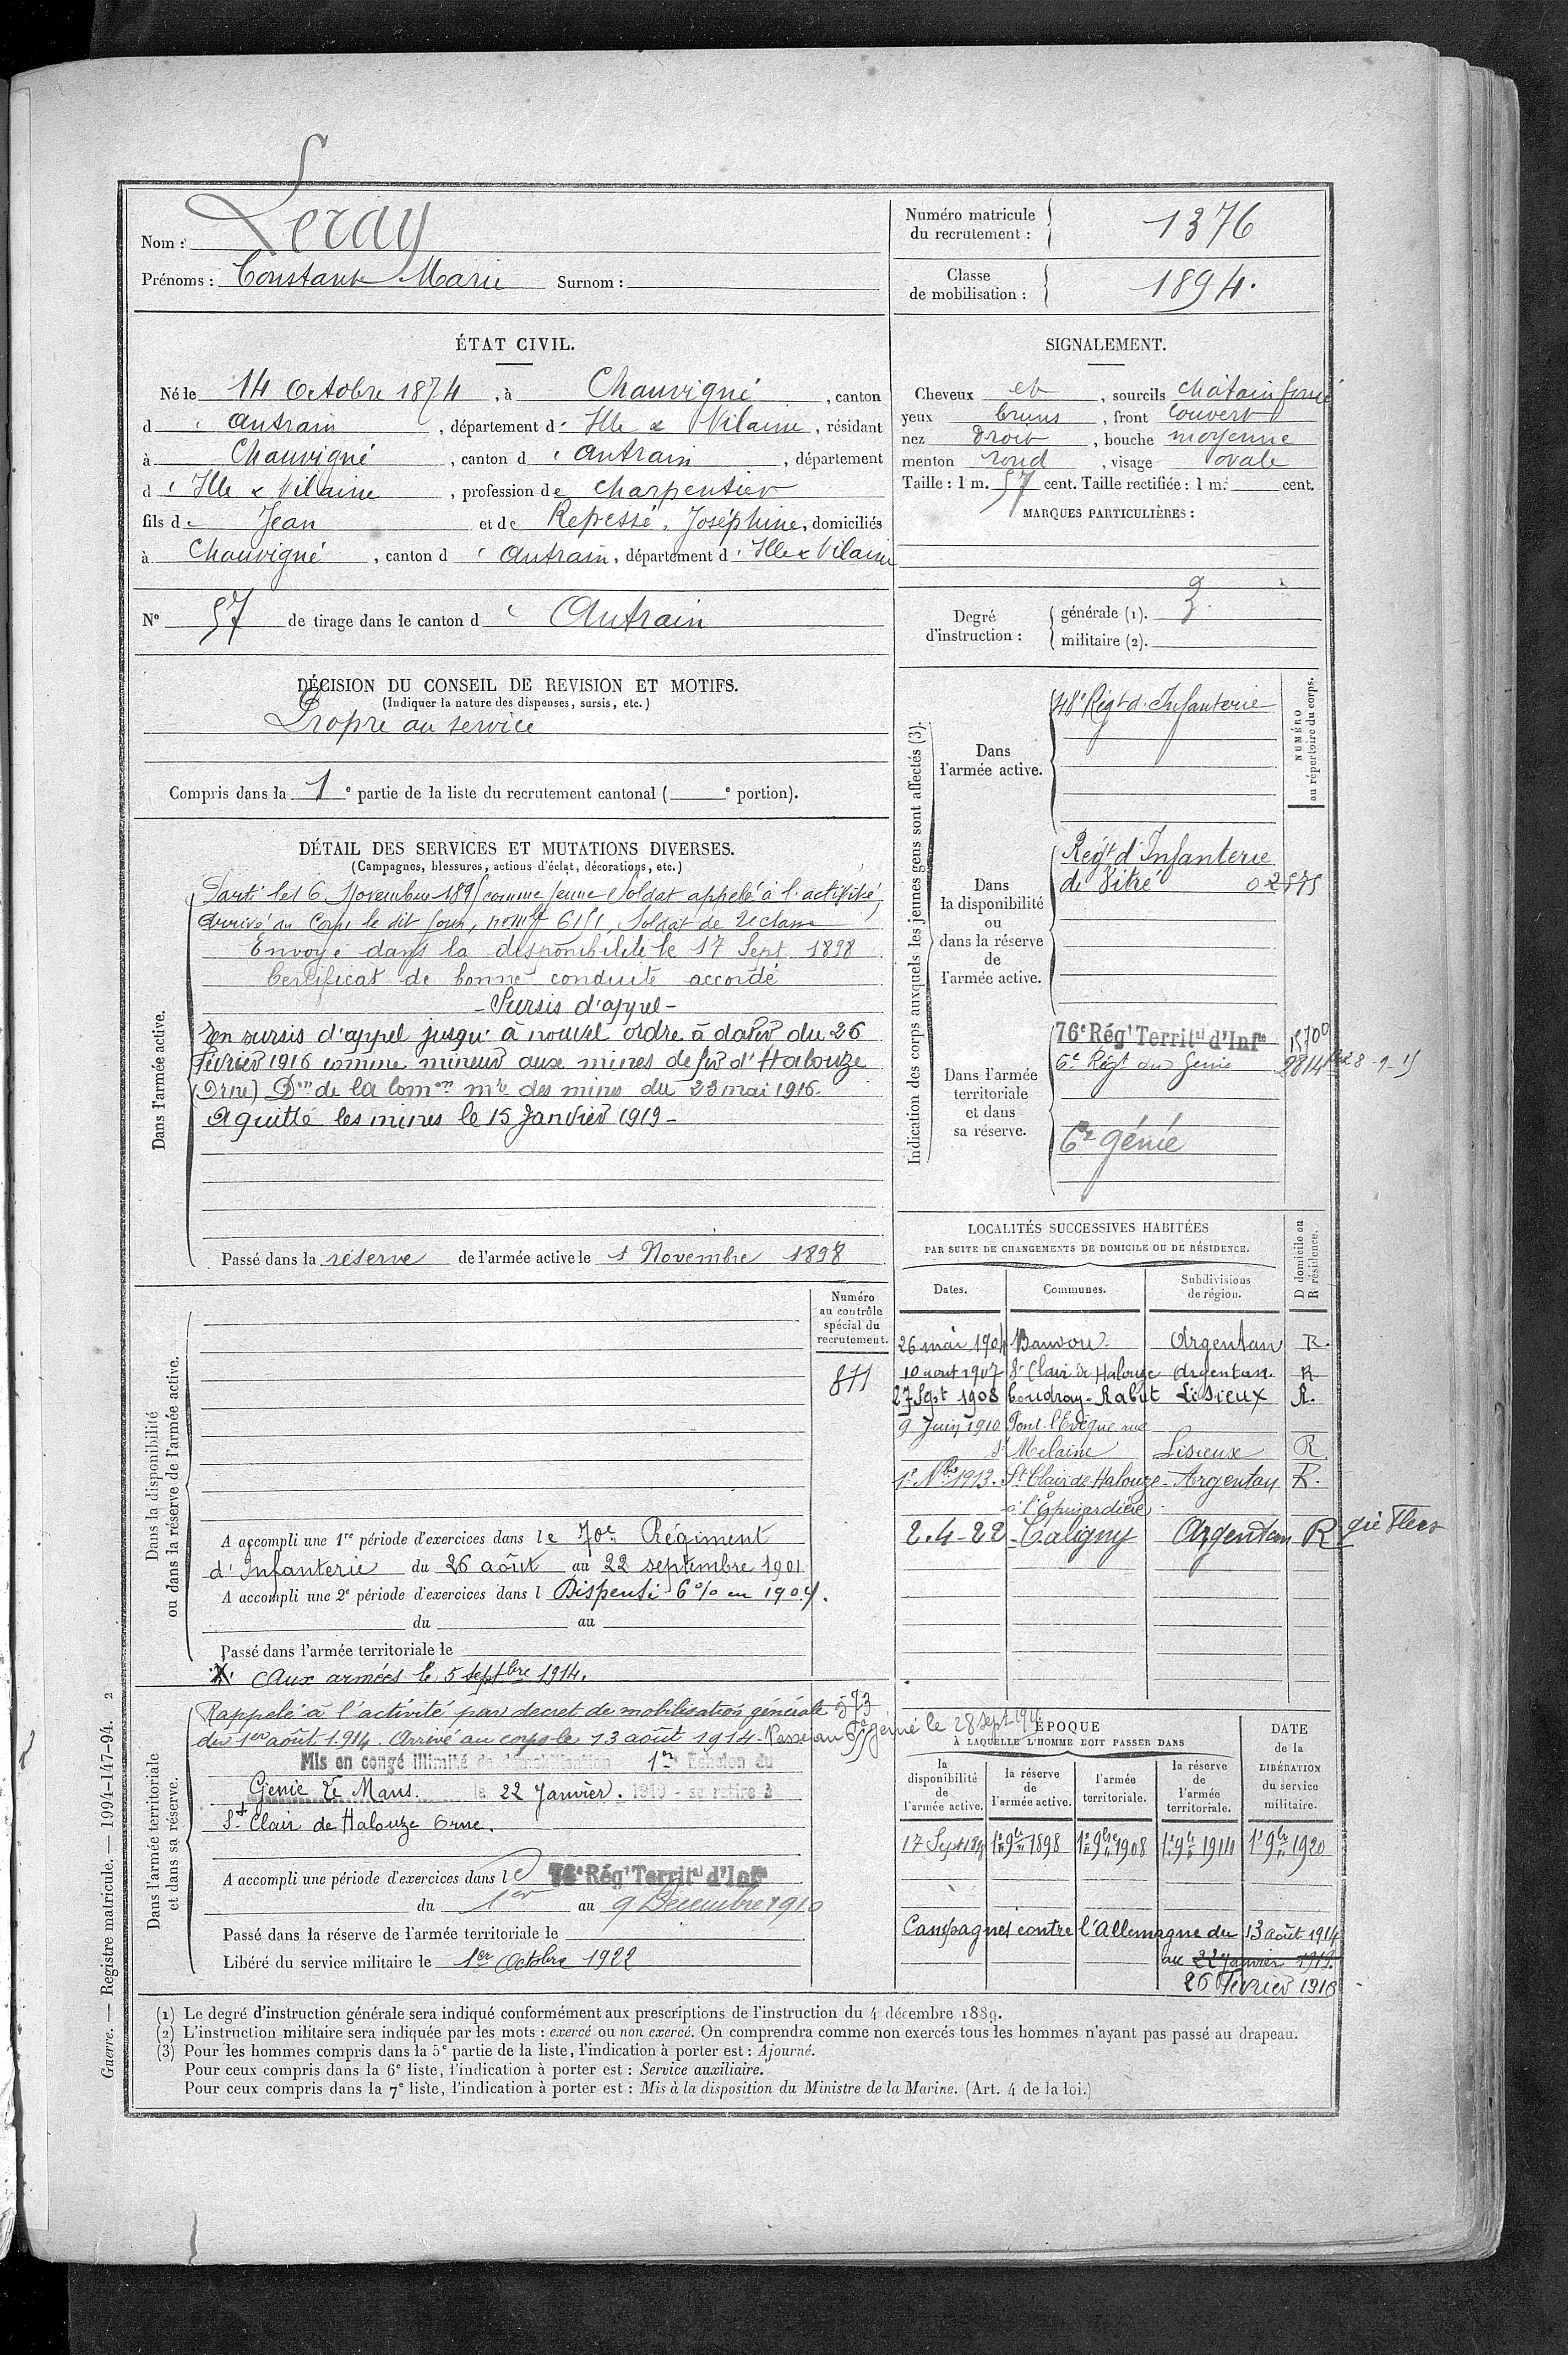 Nom : Leray
Prénoms : Constant Marie Surnom :
Numéro matricule du recrutement : 1376
Classe de mobilisation : 1894.
ÉTAT CIVIL.
Né le 14 Octobre 1874, à Chauvigné, canton
d' Antrain, département d' Ille & Vilaine, résidant
à Chauvigné, canton d' Antrain, département
d' Ille & Vilaine, profession de charpentier
fils de Jean et de Repessé, Joséphine, domiciliés
à Chauvigné, canton d' Antrain, département d' Ille & Vilaine
N° 57 de tirage dans le canton d' Antrain
SIGNALEMENT.
Cheveux et, sourcils chatain foncé
yeux bruns, front couvert
nez droit, bouche moyenne
menton rond, visage ovale
Taille : 1 m. 57 cent. Taille rectifiée : 1 m. cent.
MARQUES PARTICULIÈRES :
Degré d'instruction :
générale (1). 3.
militaire (2).
DÉCISION DU CONSEIL DE REVISION ET MOTIFS.
(Indiquer la nature des dispenses, sursis, etc.)
Propre au service
Compris dans la 1e partie de la liste du recrutement cantonal ( e portion).
DÉTAIL DES SERVICES ET MUTATIONS DIVERSES.
(Campagnes, blessures, actions d'éclat, décorations, etc.)
Dans l'armée active.
Parti le 16 Novembre 1895 comme jeune Soldat appelé à l'activité,
Arrivé au Corps le dit jour, 6151, Soldat de 2e classe
Envoyé dans la disponibilité le 17 Sept 1898
Certificat de bonne conduite accordé
- Sursis d'appel -
En sursis d'appel jusqu'à nouvel ordre à dater du 26
Février 1916 comme mineur aux mines de fer d'Halouze
(Orne) Don de la Comon mre des mines du 23 mai 1916.
A quitté les mines le 15 Janvier 1919 -
Passé dans la réserve de l'armée active le 1 Novembre 1898
Indication des corps auxquels les jeunes gens sont affectés (3).
NUMÉRO au répertoire du corps.
Dans l'armée active.
48e Regt d'Infanterie
Dans la disponibilité ou dans la réserve de l'armée active.
Regt d'Infanterie
de Vitré 02575
Dans l'armée territoriale et dans sa réserve.
76e Régt Territal d'Infie 15700
6e Regt du Génie 28-9-15
6e Génie
LOCALITÉS SUCCESSIVES HABITÉES
PAR SUITE DE CHANGEMENTS DE DOMICILE OU DE RÉSIDENCE.
Dates. Communes. Subdivisions de région. D domicile ou R résidence.
26 mai 1904 Banvou Argentan R.
10 aout 1907 St Clair de Halouze Argentan. R
27 Sept 1908 Coudray-Rabut Lisieux R.
9 Juin 1910 Pont l'Evêque rue
St Melaine Lisieux R
1e Nbre 1913. St Clair de Halouze - Argentan R.
2.4-22 - Caligny Argentan R gie Flers
Dans la disponibilité ou dans la réserve de l'armée active.
Numéro au contrôle spécial du recrutement.
871
A accompli une 1re période d'exercices dans le 70e Régiment
d'Infanterie du 26 août au 22 septembre 1901
A accompli une 2e période d'exercices dans l Dispensé 6% en 1904.
du au
Passé dans l'armée territoriale le
X Aux armées le 5 septbre 1914.
Dans l'armée territoriale et dans sa réserve.
Rappelé à l'activité par decret de mobilisation générale 573
du 1er août 1914. Arrivé au corps le 13 août 1914 - Passé au 6e génie le 28 Sept 1915
Mis en congé illimité de démobilisation 1er Echelon du
Génie Le Mans. le 22 Janvier. 1919 - se retire à
St Clair de Halouze Orne.
A accompli une période d'exercices dans le 76e Régt Territal d'Infie
du 1er au 9 Decembre 1910
Passé dans la réserve de l'armée territoriale le
Libéré du service militaire le 1er Octobre 1922
ÉPOQUE
À LAQUELLE L'HOMME DOIT PASSER DANS
la disponibilité de l'armée active.
la réserve de l'armée active.
l'armée territoriale.
la réserve de l'armée territoriale.
DATE de la LIBÉRATION du service militaire.
17 Sept 1898 1er 9bre 1898 1er 9bre 1908 1er 9bre 1914 1er 9bre 1920
Campagnes contre l'Allemagne du 13 août 1914
au 22 janvier 1919.
26 Février 1916
(1) Le degré d'instruction générale sera indiqué conformément aux prescriptions de l'instruction du 4 décembre 1889.
(2) L'instruction militaire sera indiquée par les mots : exercé ou non exercé. On comprendra comme non exercés tous les hommes n'ayant pas passé au drapeau.
(3) Pour les hommes compris dans la 5e partie de la liste, l'indication à porter est : Ajourné.
Pour ceux compris dans la 6e liste, l'indication à porter est : Service auxiliaire.
Pour ceux compris dans la 7e liste, l'indication à porter est : Mis à la disposition du Ministre de la Marine. (Art. 4 de la loi.)
Guerre. — Registre matricule. — 1994-147-94. 2